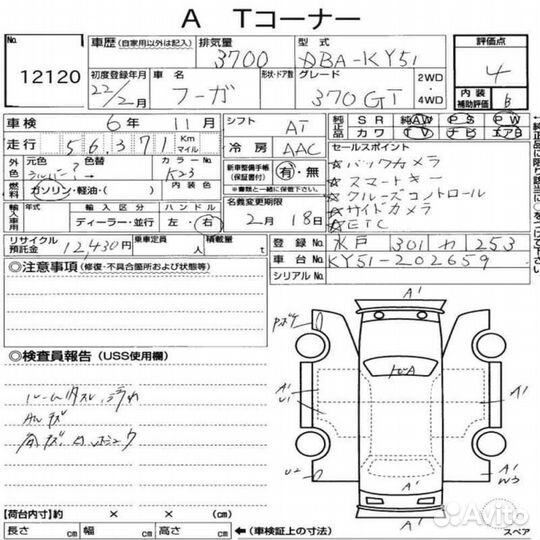 A Tコーナー
No. 12120
車歴 (自家用以外は記入) 排気量 3700 型式 DBA-KY51
評価点 4
内装補助評価 B
初度登録年月 22/2月 車名 フーガ 形状・ドア数 グレード 370GT 2WD・4WD
車検 6年 11月 シフト AT
純正品 SR AW PS PW
カワ TV ナビ エアB
走行 56,371 Km マイル 冷房 AAC
セールスポイント
☆バックカメラ
☆スマートキー
☆クルーズコントロール
☆サイドカメラ
☆ETC
外色 元色 シルバー? 色替 カラーNo. K23
燃料 ガソリン・軽油・( ) 内装色
新車整備手帳(保証書付) 有・無
※書類と一緒に保管下さい。
輸入車用 年式 輸入区分 ハンドル
ディーラー・並行 左・右
名義変更期限
2月 18日
リサイクル預託金 12,430円 乗車定員 人 積載量 t
登録No. 水戸 301 253
車台No. KY51-202659
シリアルNo.
◎注意事項 (修復・不具合箇所および状態等)
◎検査員報告 (USS使用欄)
ルーム内スレ、汚れ
AWキズ
A'
A'
A'
A'
U1
A'
U2
A'
W3
A'
【荷台内寸】約 × × (cm)
長さ cm 幅 cm 高さ cm ←(車検証上の寸法)
スペア
Avito